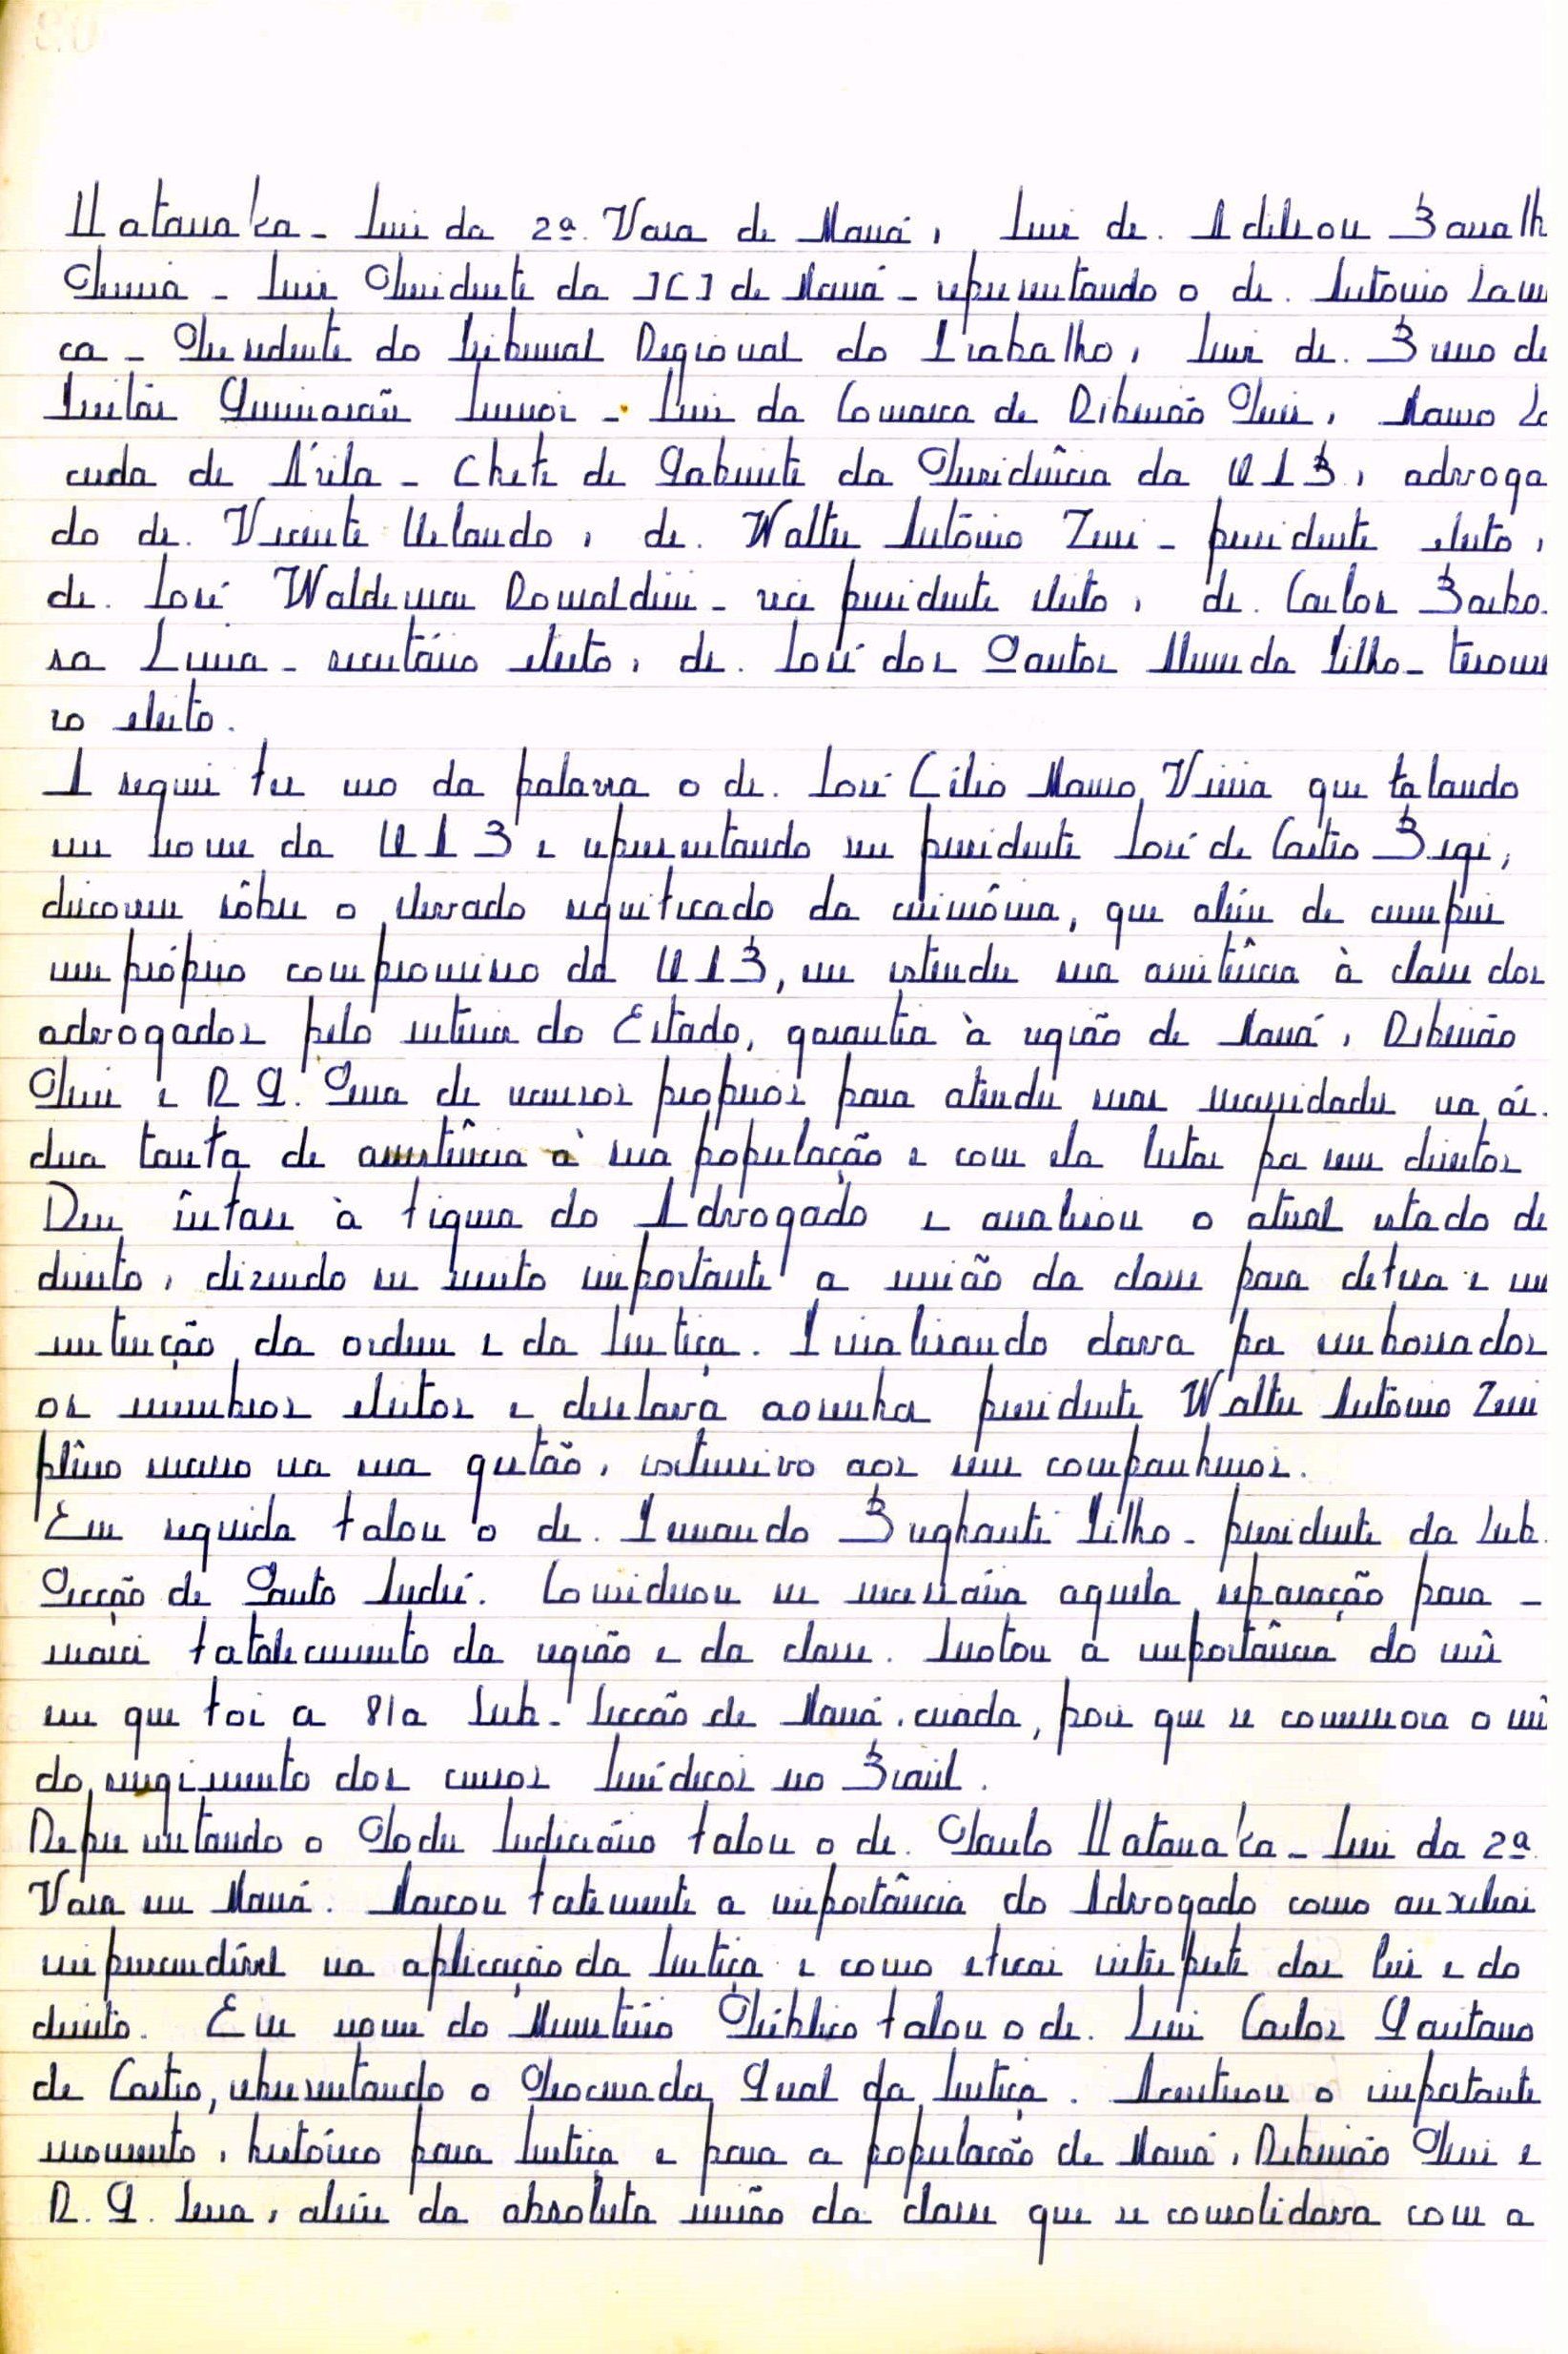 Hatanaka - Juiz da 2ª. Vara de Mauá, Juiz dr. Adilson Bavalh
Pereira - Juiz Presidente da JCJ de Mauá - representando o dr. Antonio Lam
ca - Presidente do Tribunal Regional do Trabalho, Juiz dr. Bruno de
Guimarães Junior - Juiz da Comarca de Ribeirão Pires, Mauro La
cerda de Ávila - Chefe de Gabinete da Presidência da OAB, advoga
do dr. Vicente Velando, dr. Walter Antônio Zeni - presidente eleito,
dr. José Waldemar Romaldini - vice presidente eleito, dr. Carlos Barbo-
sa Lima - secretário eleito, dr. José dos Santos Miranda Filho - tesourei
ro eleito.
A seguir fez uso da palavra o dr. José Célio Mauro Vieira que falando
em nome da OAB e representando seu presidente José de Castro Bigi,
discorreu sôbre o elevado significado da cerimônia, que além de cumprir
um próprio compromisso da OAB, em estender sua assistência à classe dos
advogados pelo interior do Estado, garantia à região de Mauá, Ribeirão
Pires e R G. Serra de recursos proprios para atender suas necessidades na ár-
dua tarefa de assistência à sua população e com ela lutar por seus direitos
Deu ênfase à figura do Advogado e analisou o atual estado de
direito, dizendo ser muito importante a união da classe para defesa e ma
nutenção da ordem e da Justiça. Finalizando dava por empossados
os membros eleitos e desejava ao senhor presidente Walter Antônio Zeni
plêno sucesso na sua gestão, extensivo aos seus companheiros.
Em seguida falou o dr. Fernando Brighanti Filho - presidente da Sub-
Secção de Santo André. Considerou ser necessária aquela separação para -
maior fortalecimento da região e da classe. Anotou a importância do mês
em que foi a 81a Sub-Secção de Mauá, criada, pois que se comemora o mês
do surgimento dos cursos Jurídicos no Brasil.
Representando o Poder Judiciário falou o dr. Paulo Hatanaka - Juiz da 2ª
Vara em Mauá. Marcou fortemente a importância do Advogado como auxiliar
imprescindível na aplicação da Justiça e como eficaz interprete das leis e do
direito. Em nome do Ministério Público falou o dr. Luiz Carlos Gaetano
de Castro, representando o Procurador Geral da Justiça. Acentuou o importante
momento, histórico para Justiça e para a população de Mauá, Ribeirão Pires e
R. G. Serra, além da absoluta união da classe que se consolidava com a